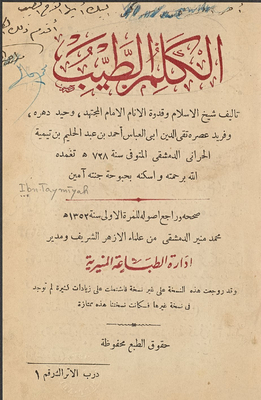 الكلم الطيب
تأليف شيخ الاسلام وقدوة الانام الامام المجتهد، وحيد دهره،
وفريد عصره تقي الدين ابي العباس أحمد بن عبد الحليم بن تيمية
الحراني الدمشقي المتوفى سنة ٧٢٨ ه تغمده
الله برحمته واسكنه بحبوحة جنته آمين
Ibn Taymiyah
صححه وراجع اصوله للمرة الاولى سنة ١٣٥٢ه
محمد منير الدمشقي من علماء الازهر الشريف ومدير
ادارة الطباعة المنيرية
وقد روجعت هذه النسخة على غير نسخة فاشتملت على زيادات كثيرة لم توجد
في نسخة غيرها فكانت نسختنا هذه ممتازة
حقوق الطبع محفوظة
درب الاتراك رقم ١